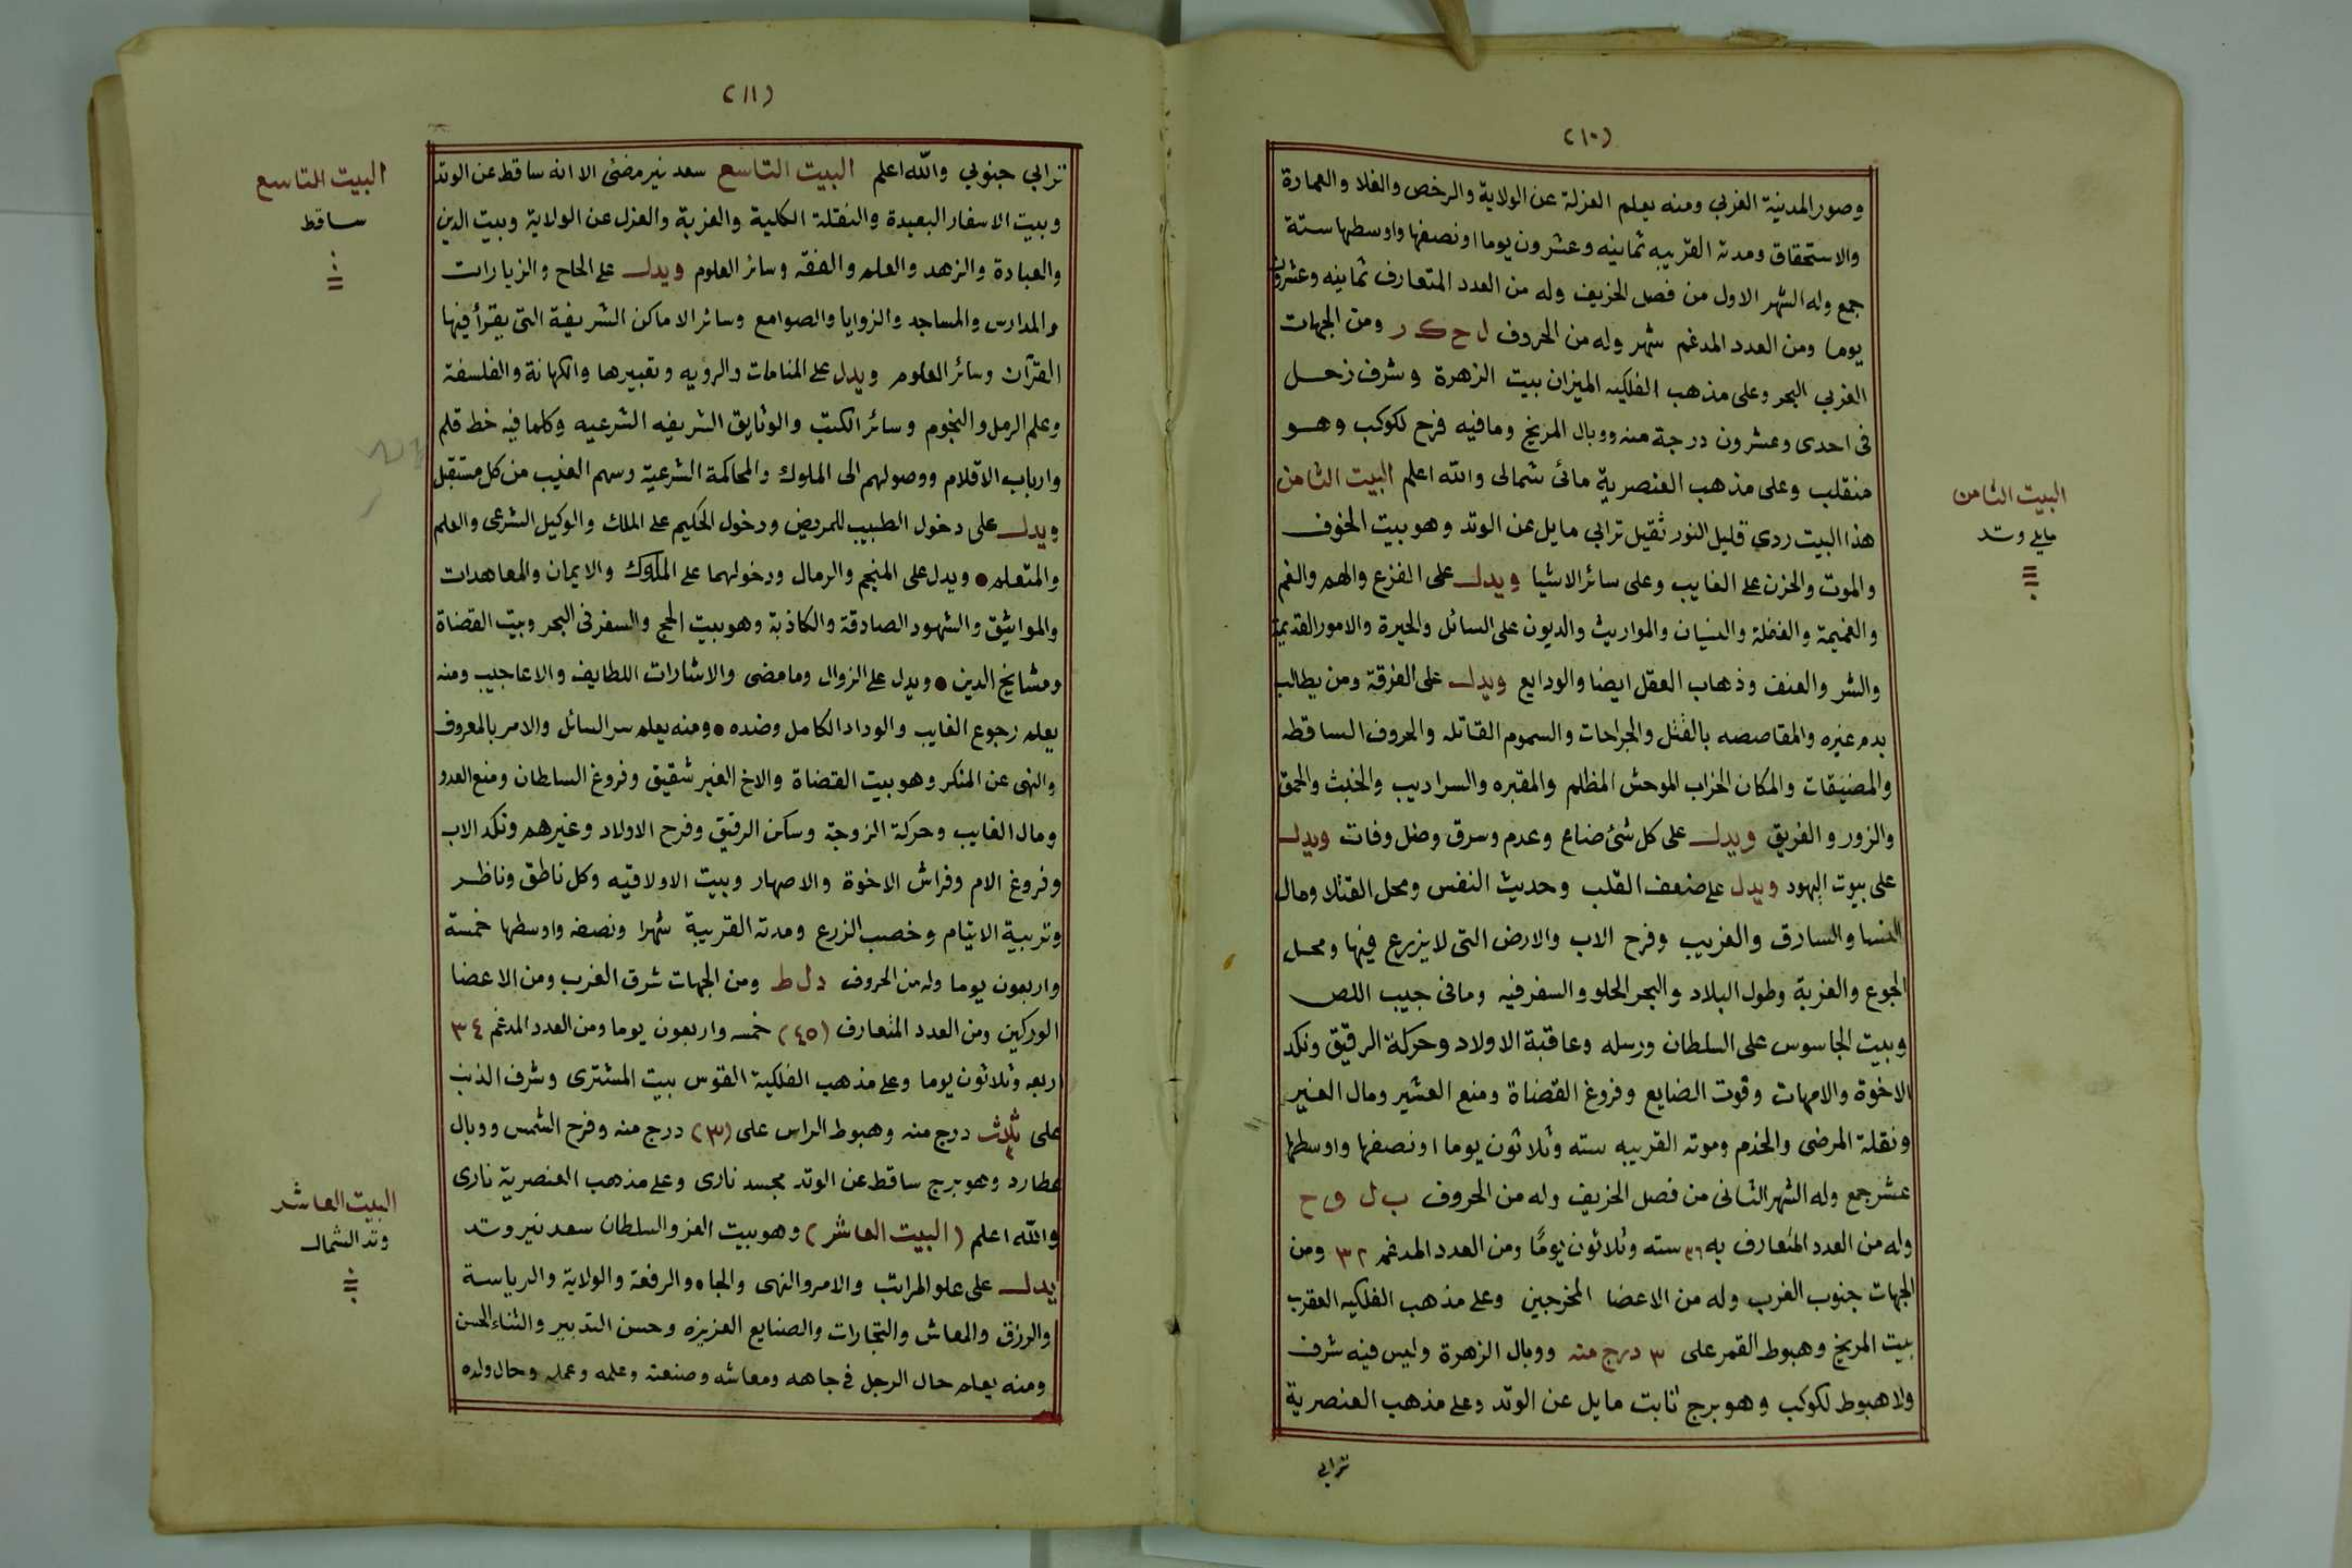 (١٠)
وصور المدنية الغربي ومنه يعلم العزلة عن الولاية والرخص والغلا والعمارة
والاستحقاق ومدته القريبه ثمانيه وعشرون يوما اونصفها واوسطها ستة
جمع وله الشهر الاول من فصل الخريف وله من العدد المتعارف ثمانيه وعشرون
يوما ومن العدد المدغم شهر وله من الحروف ل ح ك ر ومن الجهات
الغربي البحر وعلى مذهب الفلكيه الميزان بيت الزهرة وشرف زحل
فى احدى وعشرون درجة منه ووبال المريخ ومافيه فرح لكوكب وهو
منقلب وعلى مذهب العنصرية مائى شمالى والله اعلم البيت الثامن
هذا البيت ردي قليل النور ثقيل ترابي مايل عن الوتد وهو بيت الخوف
والموت والحزن على الغايب وعلى سائر الاشيا ويدل على الفزع والهم والغم
والغميمة والغفلة والنسيان والمواريث والديون على السائل والحيرة والامور القديمة
والشر والعنف وذهاب العقل ايضا والودايع ويدل على الفرقة ومن يطالب
بدم غيره والمقاصصه بالقتل والجراحات والسموم القاتله والحروف الساقطه
والمضيقات والمكان الخراب الموحش المظلم والمقبره والسراديب والخبث والحمق
والزور والغريق ويدل على كل شئ ضاع وعدم وسرق وضل وفات ويدل
على بيوت اليهود ويدل على ضعف القلب وحديث النفس ومحل القتلا ومال
النسا والسارق والغريب وفرح الاب والارض التى لا يزرع فيها ومحل
الجوع والغربة وطول البلاد والبحر الحلو والسفر فيه ومافى جيب اللص
وبيت الجاسوس على السلطان ورسله وعاقبة الاولاد وحركة الرقيق ونكد
الاخوة والامهات وقوت الضايع وفروغ القضاة ومنع العشير ومال الغير
ونقلة المرضى والخدم وموته القريبه سته وثلاثون يوما اونصفها واوسطها
عشر جمع وله الشهر الثانى من فصل الخريف وله من الحروف ب ل و ح
وله من العدد المتعارف به ٣٦ سته وثلاثون يومًا ومن العدد المدغم ٣٢ ومن
الجهات جنوب الغرب وله من الاعضا المخرجين وعلى مذهب الفلكيه العقرب
بيت المريخ وهبوط القمر على ٣ درج منه ووبال الزهرة وليس فيه شرف
ولا هبوط لكوكب وهو برج ثابت مايل عن الوتد وعلى مذهب العنصرية
ترابي
البيت الثامن
مايل وتد
(١١)
ترابي جنوبي والله اعلم البيت التاسع سعد نير مضئى الا انه ساقط عن الوتد
وبيت الاسفار البعيدة والنقلة الكلية والغربة والعزل عن الولاية وبيت الدين
والعبادة والزهد والعلم والفقه وسائر العلوم ويدل على الحاج والزيارات
والمدارس والمساجد والزوايا والصوامع وسائر الاماكن الشريفة التى يقرأ فيها
القرآن وسائر العلوم ويدل على المنامات والرويه وتعبيرها والكهانة والفلسفة
وعلم الرمل والنجوم وسائر الكتب والوثايق الشريفه الشرعيه وكلما فيه خط قلم
وارباب الاقلام ووصولهم الى الملوك والمحاكمة الشرعية وسهم الغيب من كل مستقبل
ويدل على دخول الطبيب للمريض ودخول الحكيم على الملك والوكيل الشرعى والعلم
والمتعلم • ويدل على المنجم والرمال ودخولهما على الملوك والايمان والمعاهدات
والمواثيق والشهود الصادقة والكاذبة وهو بيت الحج والسفر فى البحر وبيت القضاة
ومشايخ الدين • ويدل على الزوال ومامضى والاشارات اللطايف والاعاجيب ومنه
يعلم رجوع الغايب والوداد الكامل وضده • ومنه يعلم سر السائل والامر بالمعروف
والنهى عن المنكر وهو بيت القضاة والاخ الغير شقيق وفروغ السلطان ومنع العدو
ومال الغايب وحركة الزوجة وسكن الرقيق وفرح الاولاد وغيرهم ونكد الاب
وفروغ الام وفراش الاخوة والاصهار وبيت الاولاقيه وكل ناطق وناظر
وتربية الايتام وخصب الزرع ومدته القريبة شهرا ونصف واوسطها خمسة
واربعون يوما وله من الحروف د ل ط ومن الجهات شرق الغرب ومن الاعضا
الوركين ومن العدد المتعارف (٤٥) خمسه واربعون يوما ومن العدد المدغم ٣٤
اربعه وثلاثون يوما وعلى مذهب الفلكية القوس بيت المشترى وشرف الذنب
على ثلاث درج منه وهبوط الراس على (٣) درج منه وفرح الشمس ووبال
عطارد وهو برج ساقط عن الوتد مجسد نارى وعلى مذهب العنصرية نارى
والله اعلم (البيت العاشر) وهو بيت العز والسلطان سعد نير وتد
يدل على علو المراتب والامر والنهى والجاه والرفعة والولاية والرياسة
والرزق والمعاش والتجارات والصنايع العزيزه وحسن التدبير والثناء الحسن
ومنه يعلم حال الرجل فى جاهه ومعاشه وصنعته وعلمه وعمله وحال ولده
البيت التاسع
ساقط
البيت العاشر
وتد الشمال